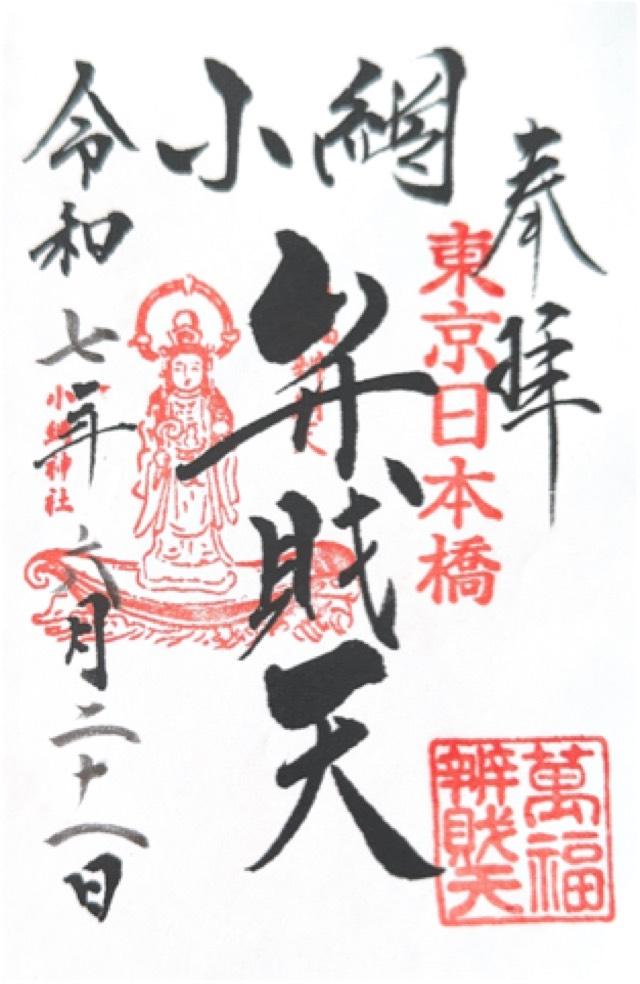 奉拝
東京日本橋
小網
弁財天
令和七年六月二十一日
小網神社
萬福
辨財天